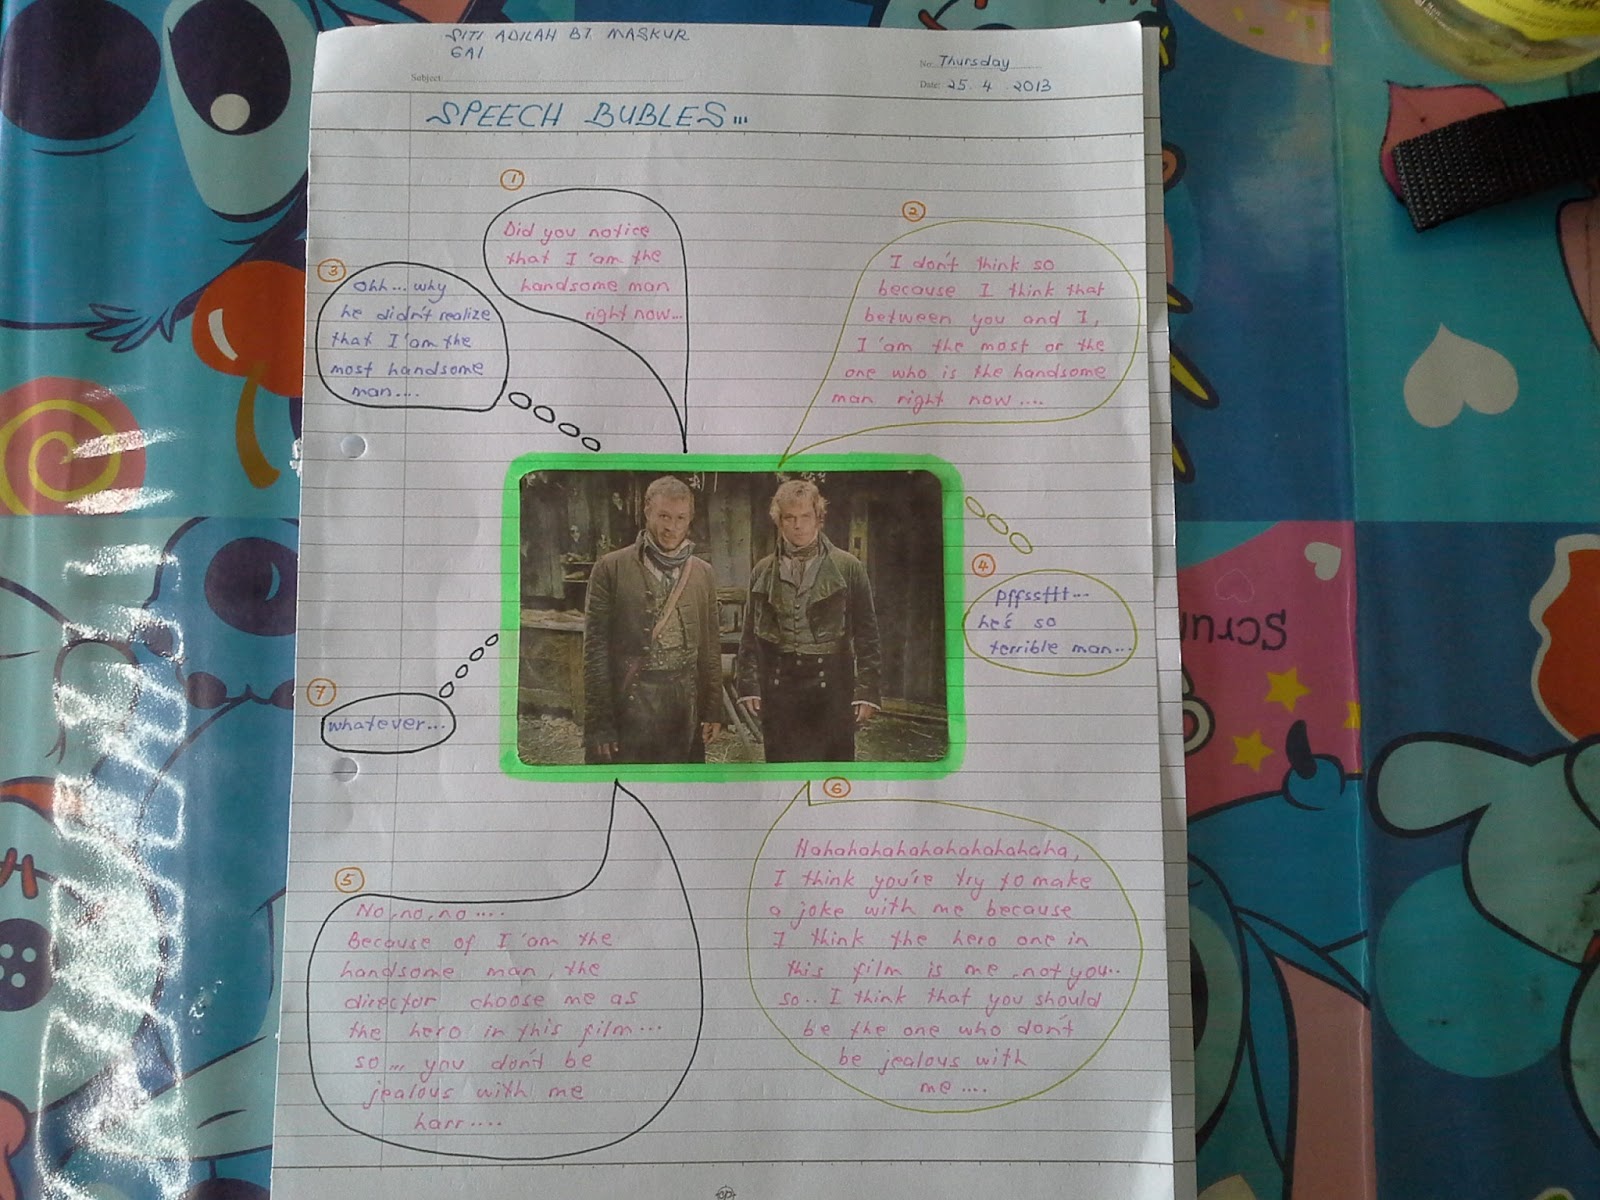 SITI ADILAH BT MASKUR
6A1
No: Thursday
Subject:
Date: 25. 4. 2013
SPEECH BUBLES...
1
Did you notice
that I'am the
handsome man
right now...
2
I don't think so
because I think that
between you and I,
I'am the most or the
one who is the handsome
man right now....
3
Ohh... why
he didn't realize
that I'am the
most handsome
man....
4
Pffssttt...
he's so
terrible man...
5
No, no, no....
Because of I'am the
handsome man, the
director choose me as
the hero in this film...
so... you don't be
jealous with me
harr....
6
Hahahahahahahahahahaha,
I think you're try to make
a joke with me because
I think the hero one in
this film is me, not you..
so.. I think that you should
be the one who don't
be jealous with
me....
7
whatever...
Scru